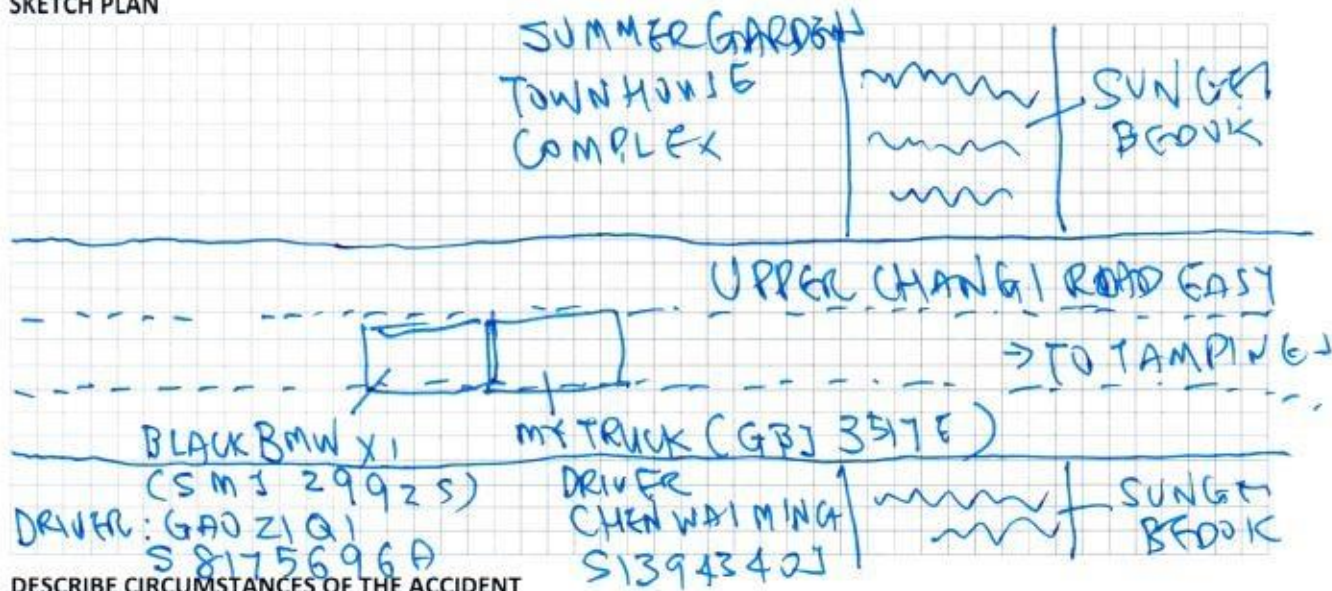 SKETCH PLAN
SUMMER GARDEN
TOWNHOUSE
COMPLEX
SUNGEI
BEDOK
UPPER CHANGI ROAD EAST
→ TO TAMPINES
BLACK BMW X1
(SMJ 2992S)
DRIVER: GAO ZIQI
S8175696A
MY TRUCK (GBJ 3517E)
DRIVER
CHEN WAI MING
S1394340J
SUNGEI
BEDOK
DESCRIBE CIRCUMSTANCES OF THE ACCIDENT